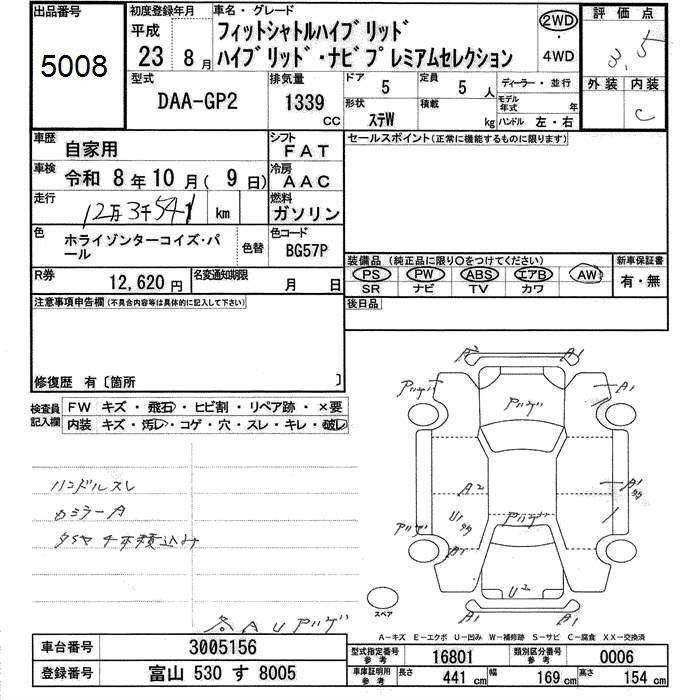 出品番号
5008
初度登録年月
平成
23 8月
車名・グレード
フィットシャトルハイブリッド
ハイブリッド・ナビプレミアムセレクション
2WD
・
4WD
評価点
3.5
外装 内装
C
型式
DAA-GP2
排気量
1339
CC
ドア
5
定員
5 人
形状
ステW
積載
kg
ディーラー・並行
モデル年式 年
ハンドル 左・右
車歴
自家用
シフト
FAT
車検
令和 8年 10月( 9日)
冷房
AAC
走行
12万3千541 km
燃料
ガソリン
色
ホライゾンターコイズ・パール
色替
色コード
BG57P
R券
12,620 円
名変通知期限
月 日
セールスポイント(正常に機能するものに限ります)
装備品 (純正品に限り○をつけてください)
PS PW ABS エアB AW
SR ナビ TV カワ
新車保証書
有・無
後日品
注意事項申告欄(不具合内容等は具体的に記入して下さい)
修復歴 有〔箇所 〕
検査員記入欄
FW キズ・飛石・ヒビ割・リペア跡・×要
内装 キズ・汚レ・コゲ・穴・スレ・キレ・破レ
ハンドルスレ
カミラーA
タイヤ4本積込み
各AUアリゲ
A2 A1
アリゲ
アリゲ
A1
A2
A1
U1
アリゲ
アリゲ
A1
U2
A1 A1
スペア
A-キズ E-エクボ U-凹み W-補修跡 S-サビ C-腐食 XX-交換済
車台番号
3005156
登録番号
富山 530 す 8005
型式指定番号
参考
16801
類別区分番号
参考
0006
車庫証明用
参考
長さ 441 cm 幅 169 cm 高さ 154 cm